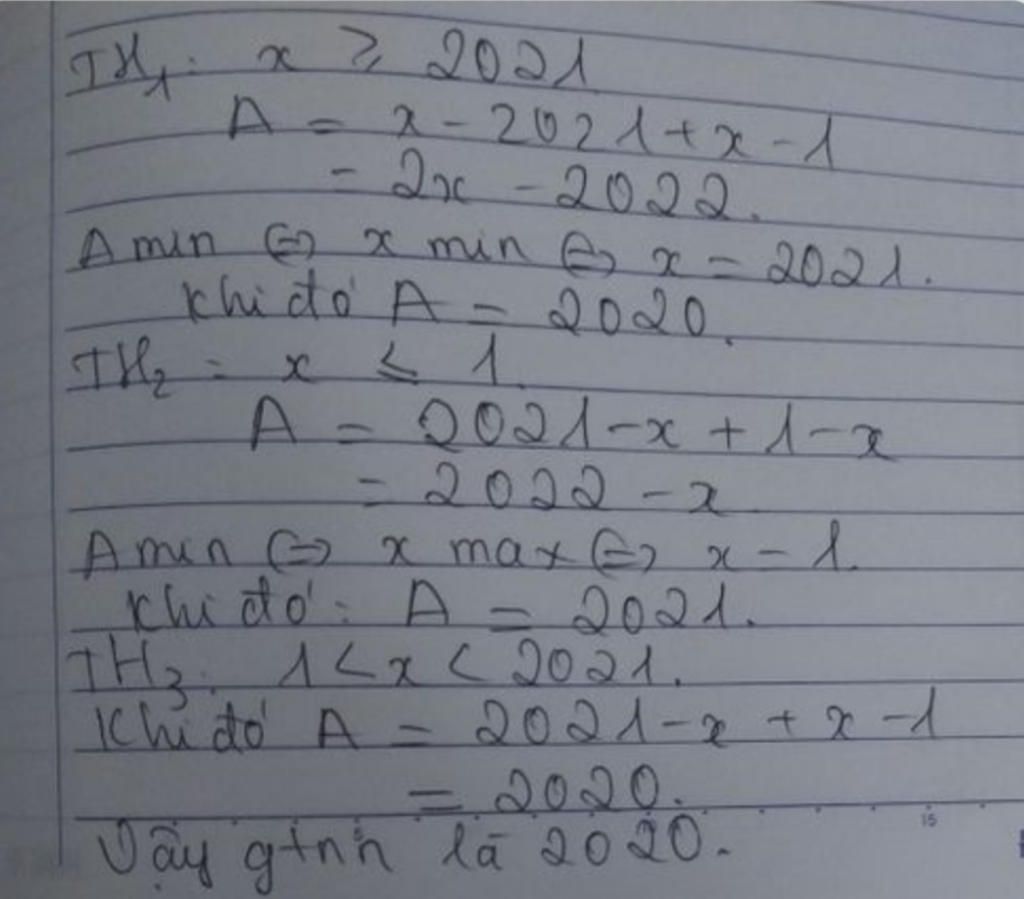 TH₁: x ≥ 2021
A = x - 2021 + x - 1
= 2x - 2022.
A min ⇔ x min ⇔ x = 2021.
Khi đó A = 2020.
TH₂ : x ≤ 1.
A = 2021 - x + 1 - x
= 2022 - x
A min ⇔ x max ⇔ x = 1.
Khi đó: A = 2021.
TH₃: 1 < x < 2021.
Khi đó A = 2021 - x + x - 1
= 2020.
15
Vậy gtnn là 2020.